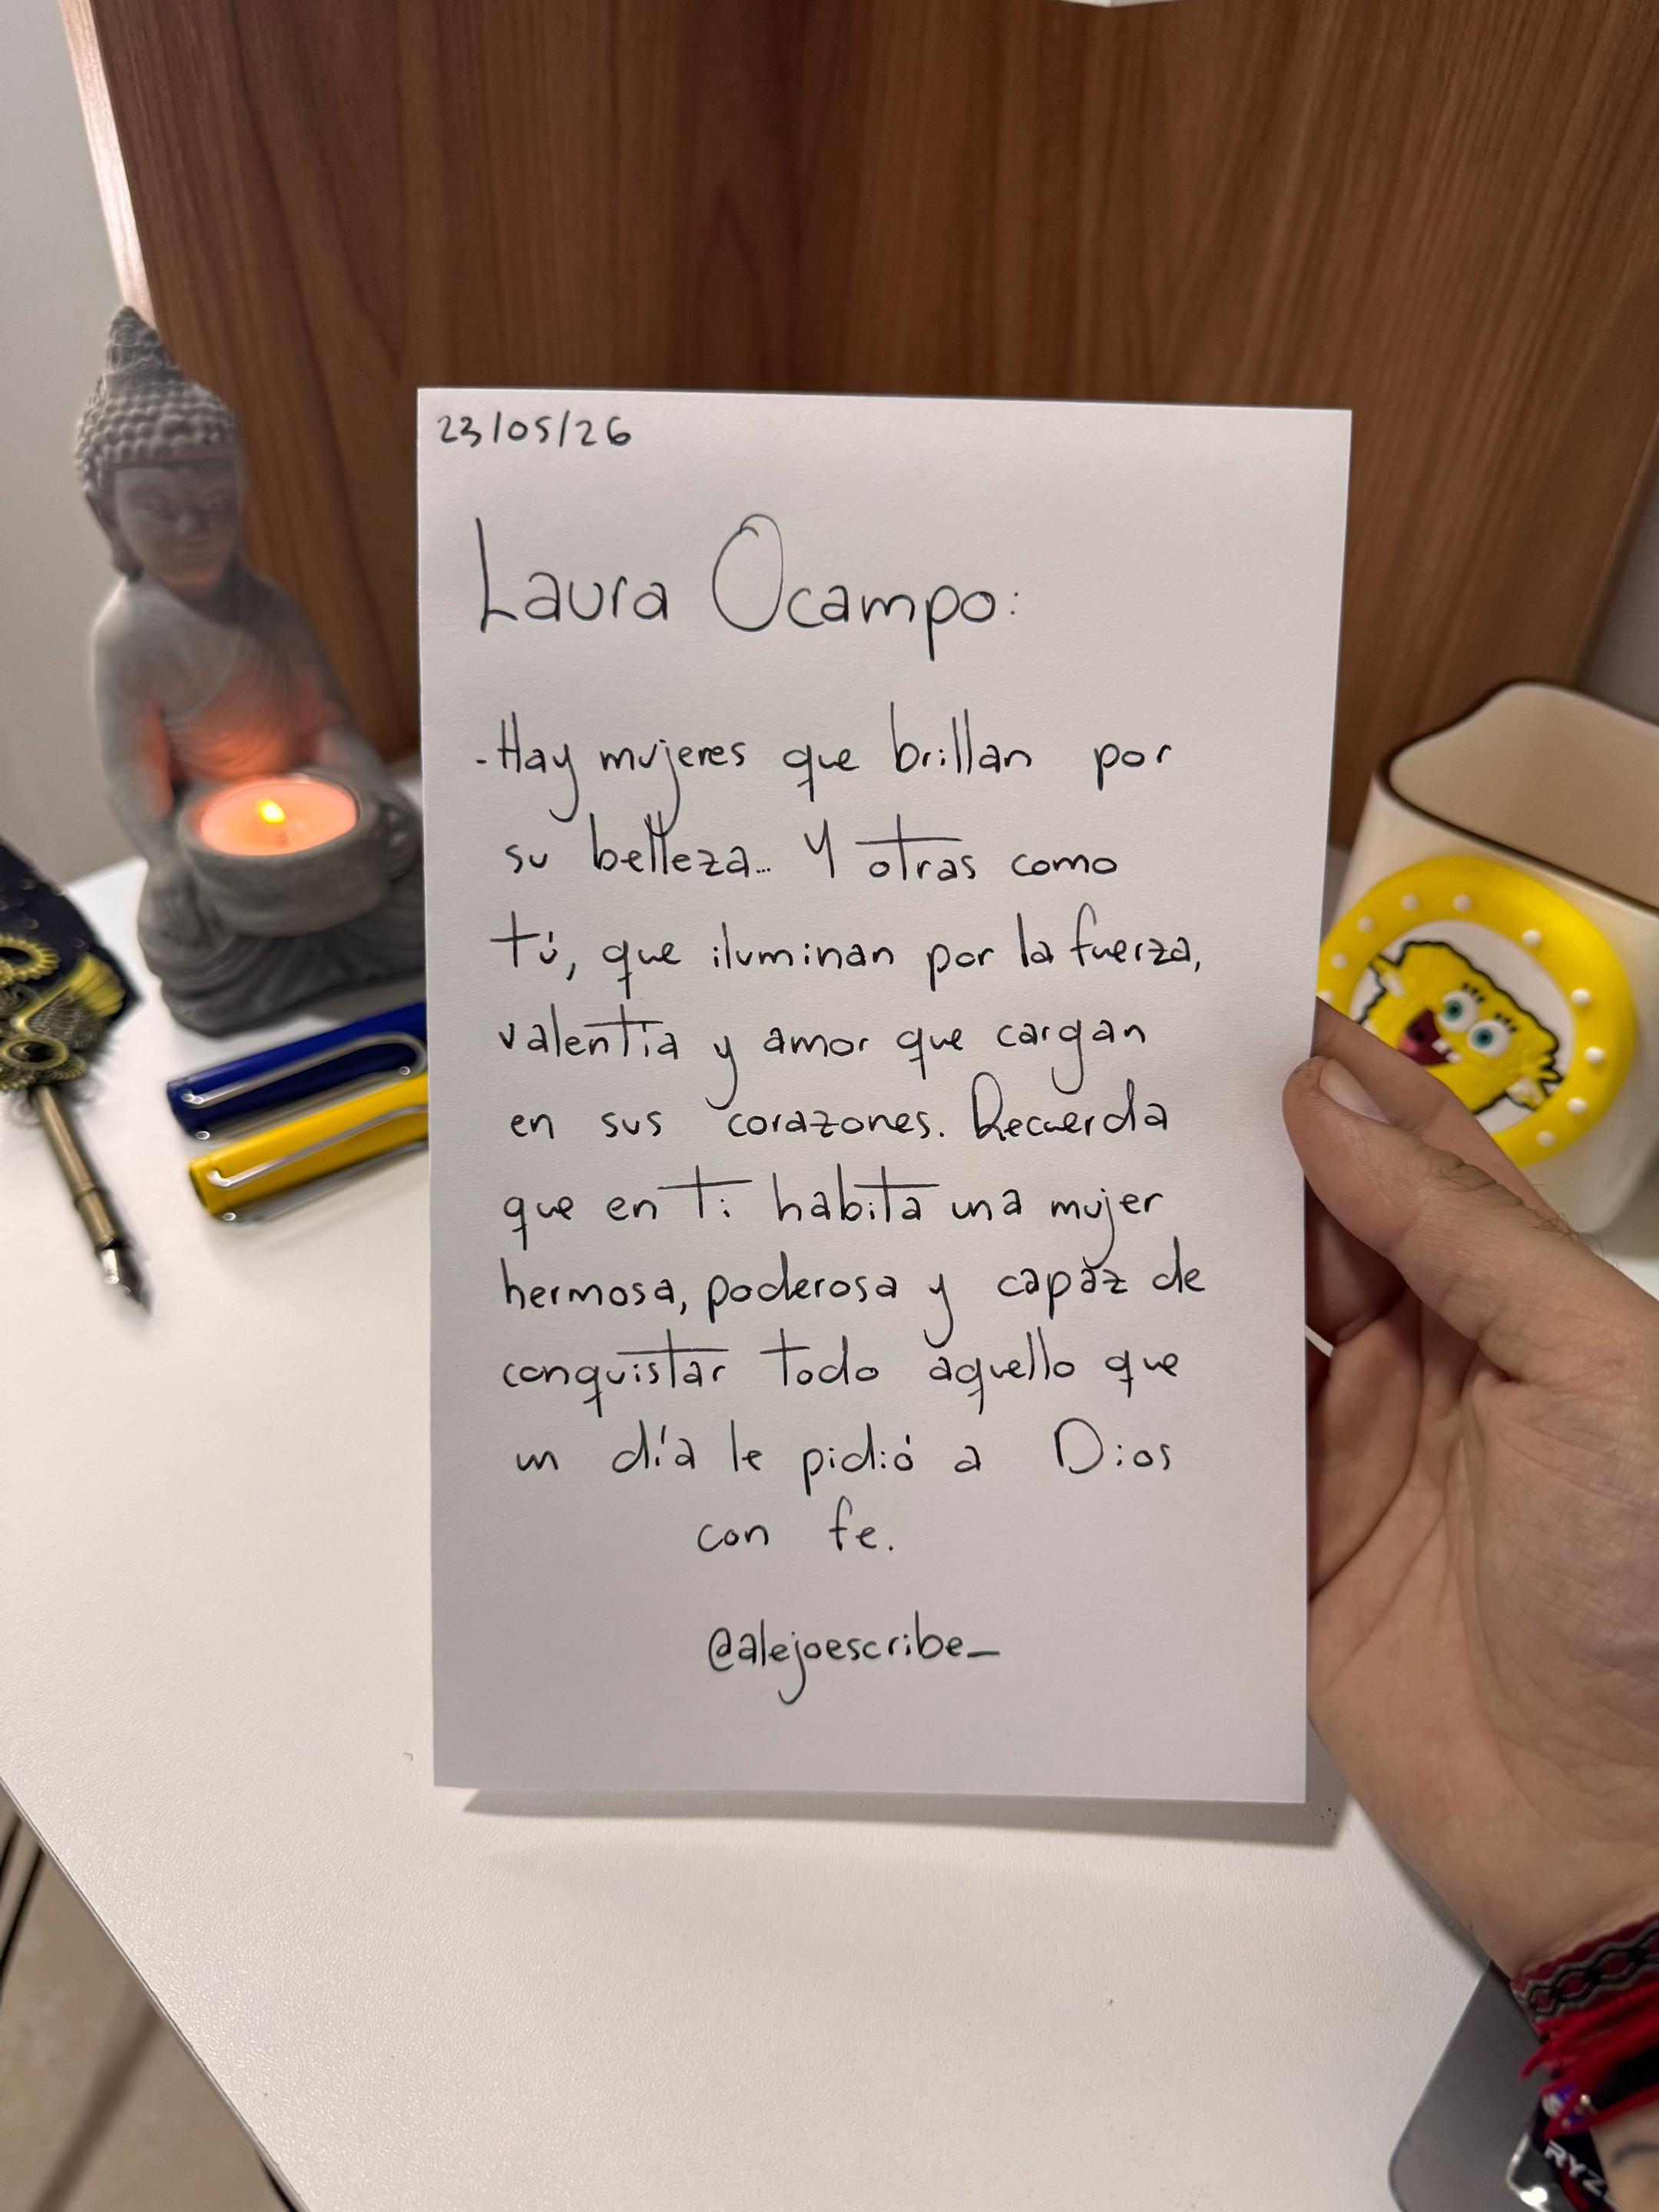 23/05/26
Laura Ocampo:
-Hay mujeres que brillan por
su belleza... Y otras como
tú, que iluminan por la fuerza,
valentía y amor que cargan
en sus corazones. Recuerda
que en ti habita una mujer
hermosa, poderosa y capaz de
conquistar todo aquello que
un día le pidió a Dios
con fe.
@alejoescribe_